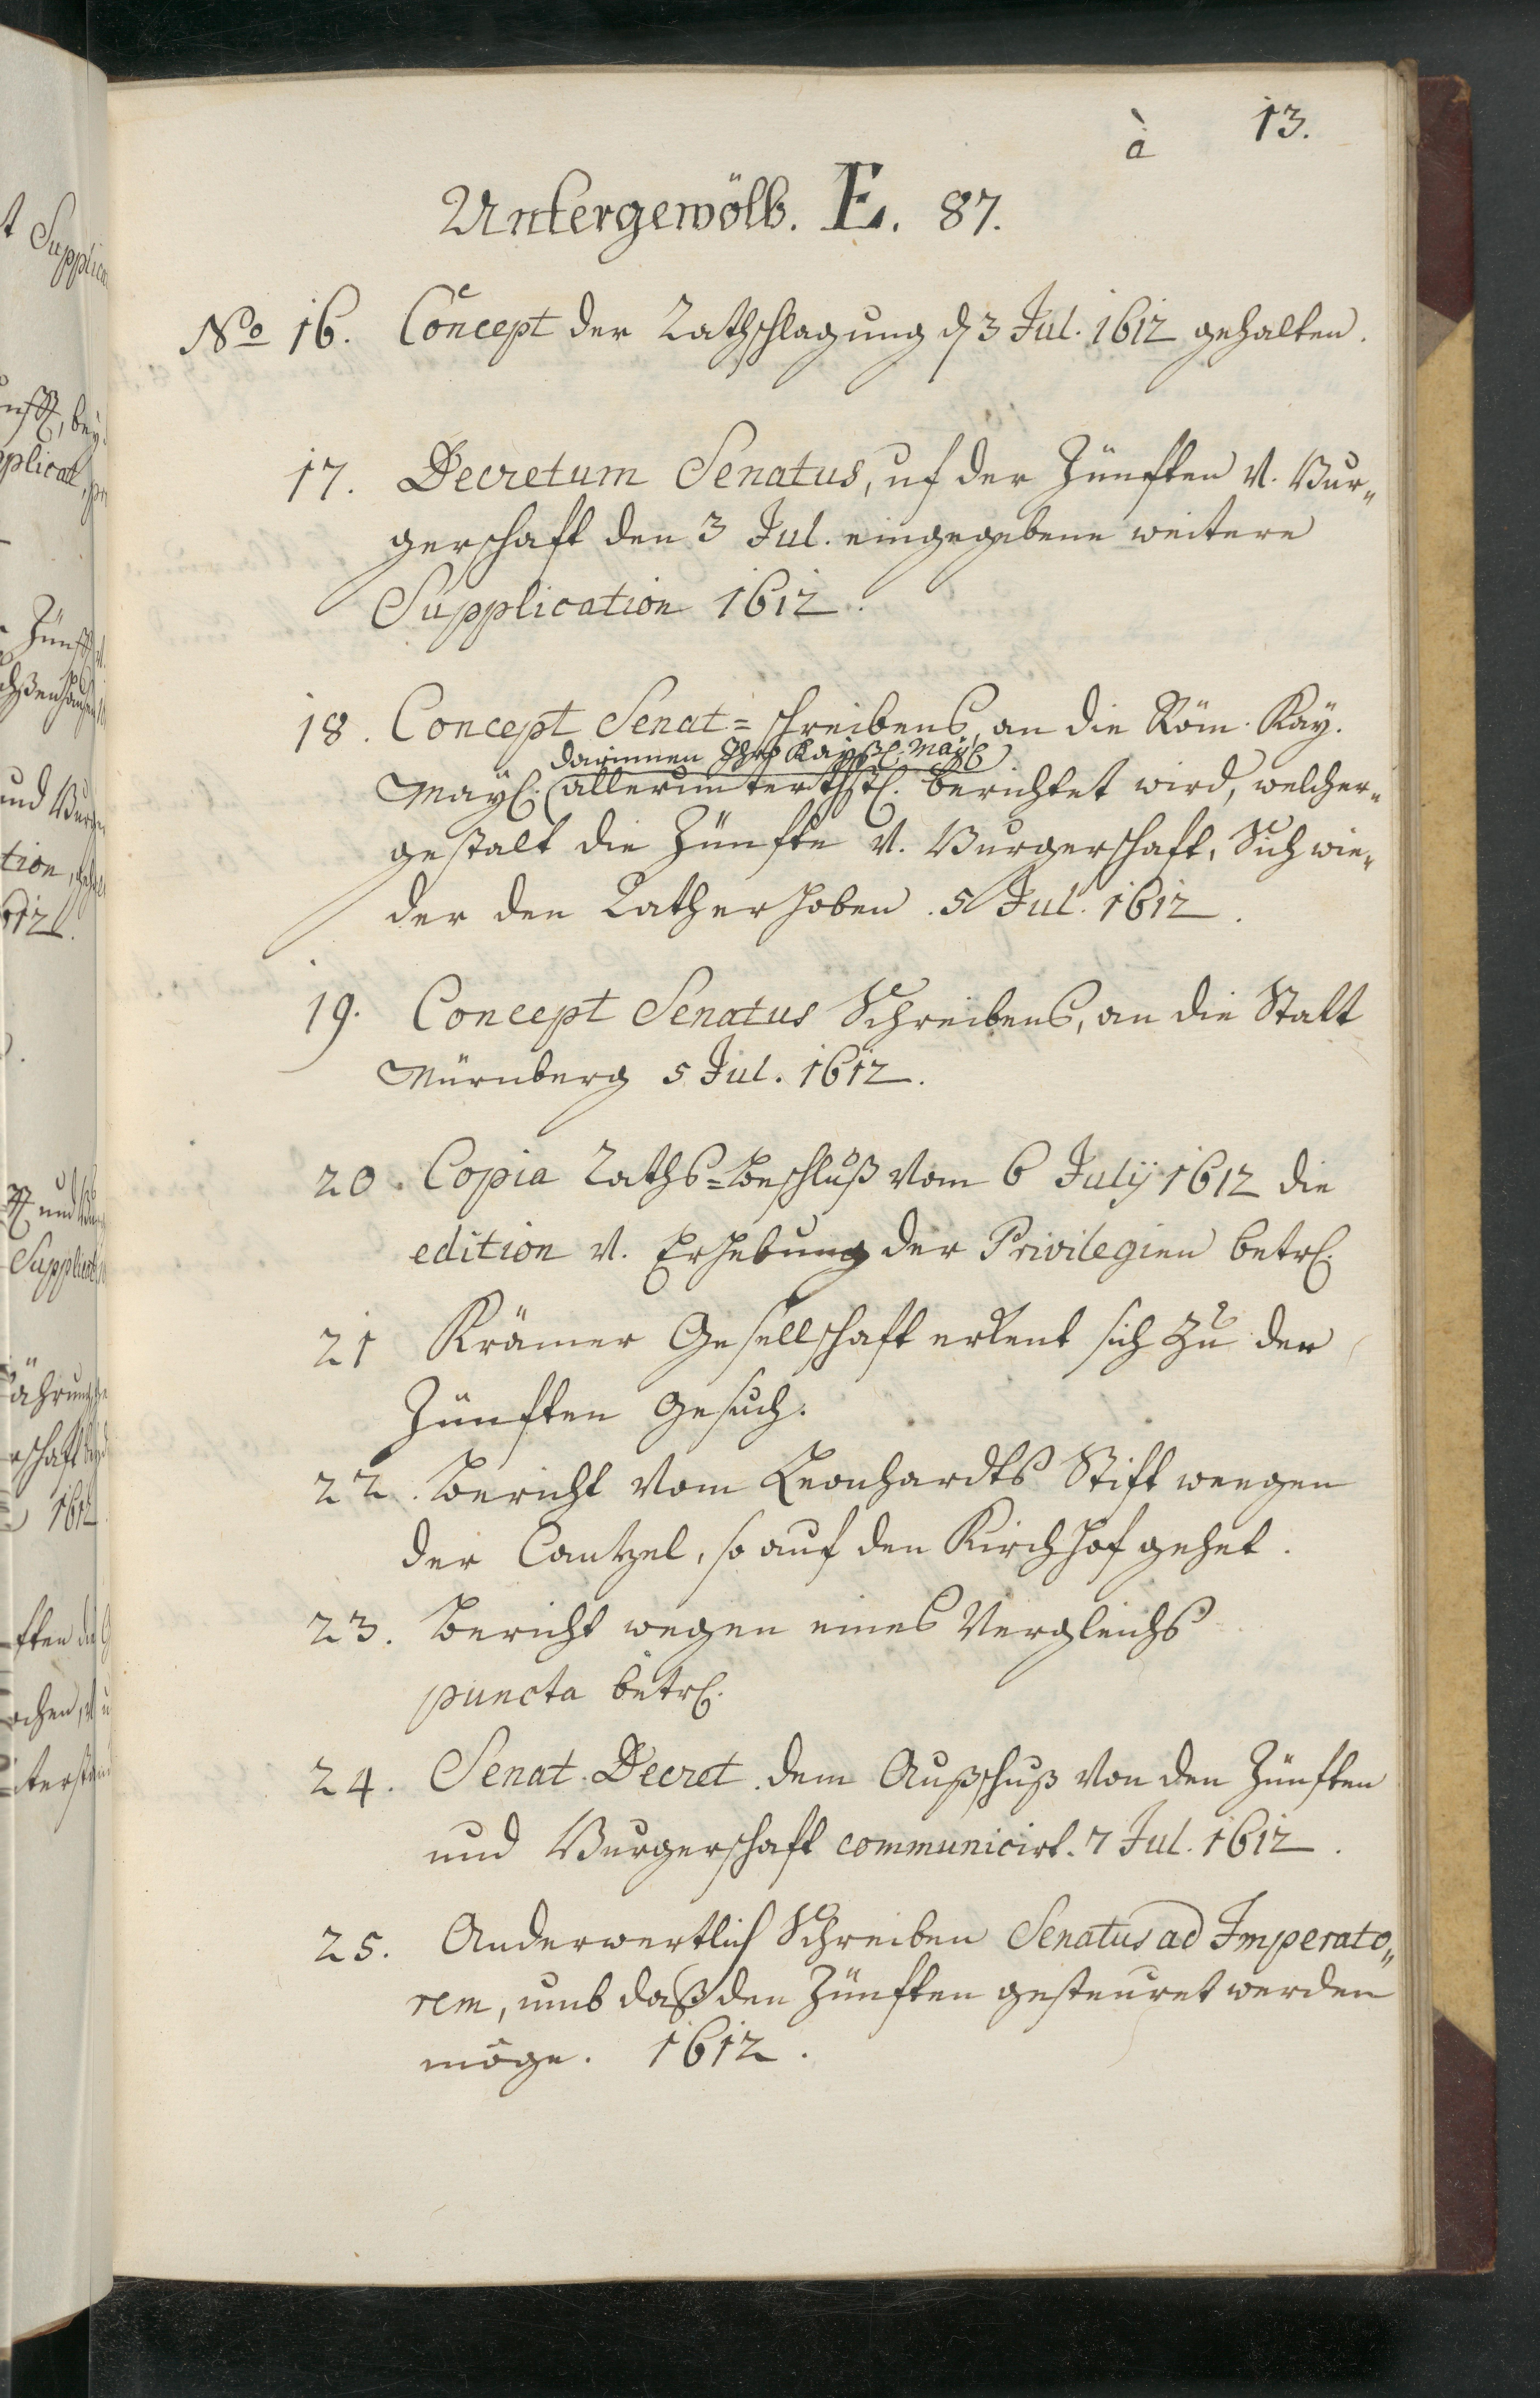 à 13.
Untergewölb. E. 87.
No 16. Concept der Rathschlagung d 3 Jul. 1612 gehalten.
17. Decretum Senatus, uf der Zünfften v. Bur„
gerschaft den 3 Jul. eingegebene weitere
Supplication 1612.
18. Concept Senat=schreibens, an die Röm. Kay.
darinnen Ihro Kayßl. Mayl
Mayl. allerunterthstl. berichtet wird, welcher„
gestalt die Zünfte v. Burgerschaft, Sich wie„
der den Rath erhoben. 5 Jul. 1612.
19. Concept Senatus Schreibens, an die Statt
Nürnberg 5 Jul. 1612.
20. Copia Raths=Beschluß vom 6 Julij 1612 die
edition v. Erhebung der Privilegien betrl.
21 Krämer Gesellschaft erkent sich zu der
Zünfften Gesuch.
22. Bericht vom Leonhardts Stift weegen
der Cantzel, so auf den Kirchhof gehet.
23. Bericht wegen eines Vergleichs
puncta betrl.
24. Senat. Decret. dem Außschuß von den Zünfften
und Burgerschaft communicirt. 7 Jul. 1612.
25. Anderwertlich Schreiben Senatus ad Imperato„
rem, umb daß den Zünfften gesteuret werden
möge. 1612.